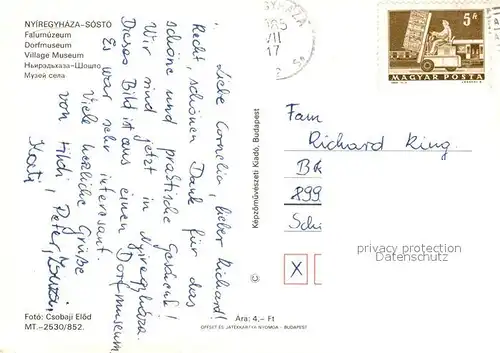 NYÍREGYHÁZA-SÓSTÓ
Falumúzeum
Dorfmuseum
Village Museum
Ньиредьхаза-Шошто
Музей села
Liebe Cornelia, lieber Richard!
Recht schönen Dank für das
schöne und praktische Geschenk!
Wir sind jetzt in Nyíregyháza.
Dieses Bild ist aus einem Dorfmuseum,
Es war sehr interessant.
Viele herzliche Grüße
von Hildi, Peter, Zsuzsi
Kati
Fotó: Csobaji Előd
MT.-2530/852.
Ára: 4,- Ft
OFFSET ÉS JÁTÉKKÁRTYA NYOMDA - BUDAPEST
© Képzőművészeti Kiadó, Budapest
985
VII
17
5 Ft
MAGYAR POSTA
Fam
Richard King.
899
Schi
X
privacy protection
Datenschutz